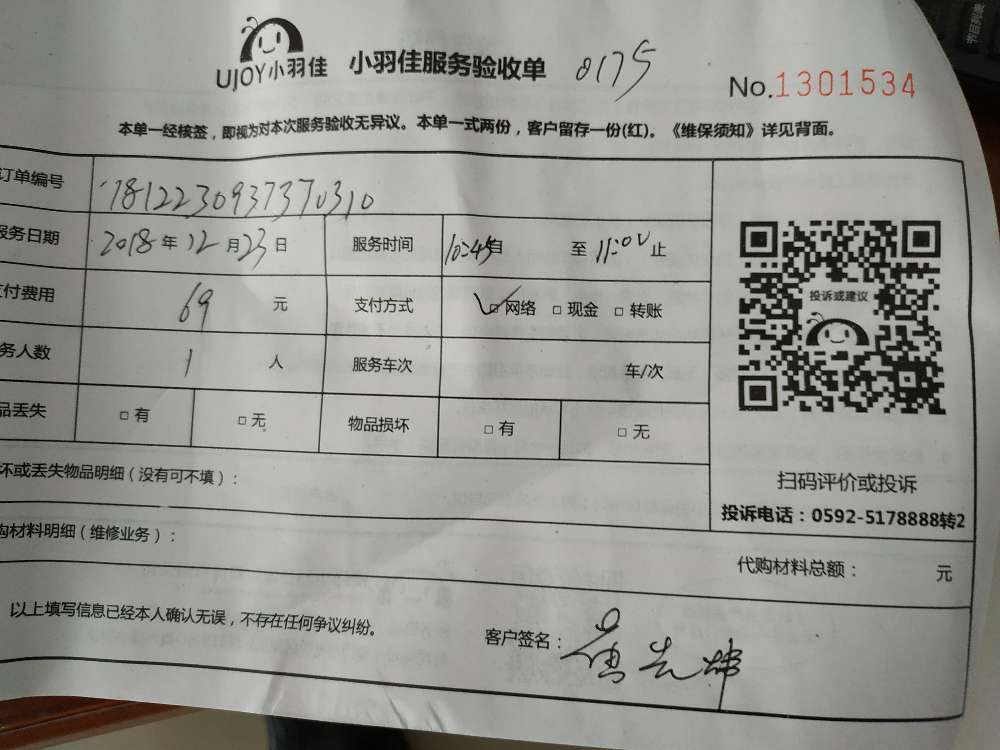 UJOY小羽佳 小羽佳服务验收单 0175
No.1301534
本单一经核签，即视为对本次服务验收无异议。本单一式两份，客户留存一份(红)。《维保须知》详见背面。
订单编号 1812230937370310
服务日期 2018年12月23日 服务时间 10:45自 至 11:00止
付费用 69 元 支付方式 ✓□网络 □现金 □转账
务人数 1 人 服务车次 车/次
品丢失 □有 □无 物品损坏 □有 □无
坏或丢失物品明细（没有可不填）：
投诉或建议
扫码评价或投诉
投诉电话：0592-5178888转2
购材料明细（维修业务）：
代购材料总额： 元
以上填写信息已经本人确认无误，不存在任何争议纠纷。
客户签名：
节目列表